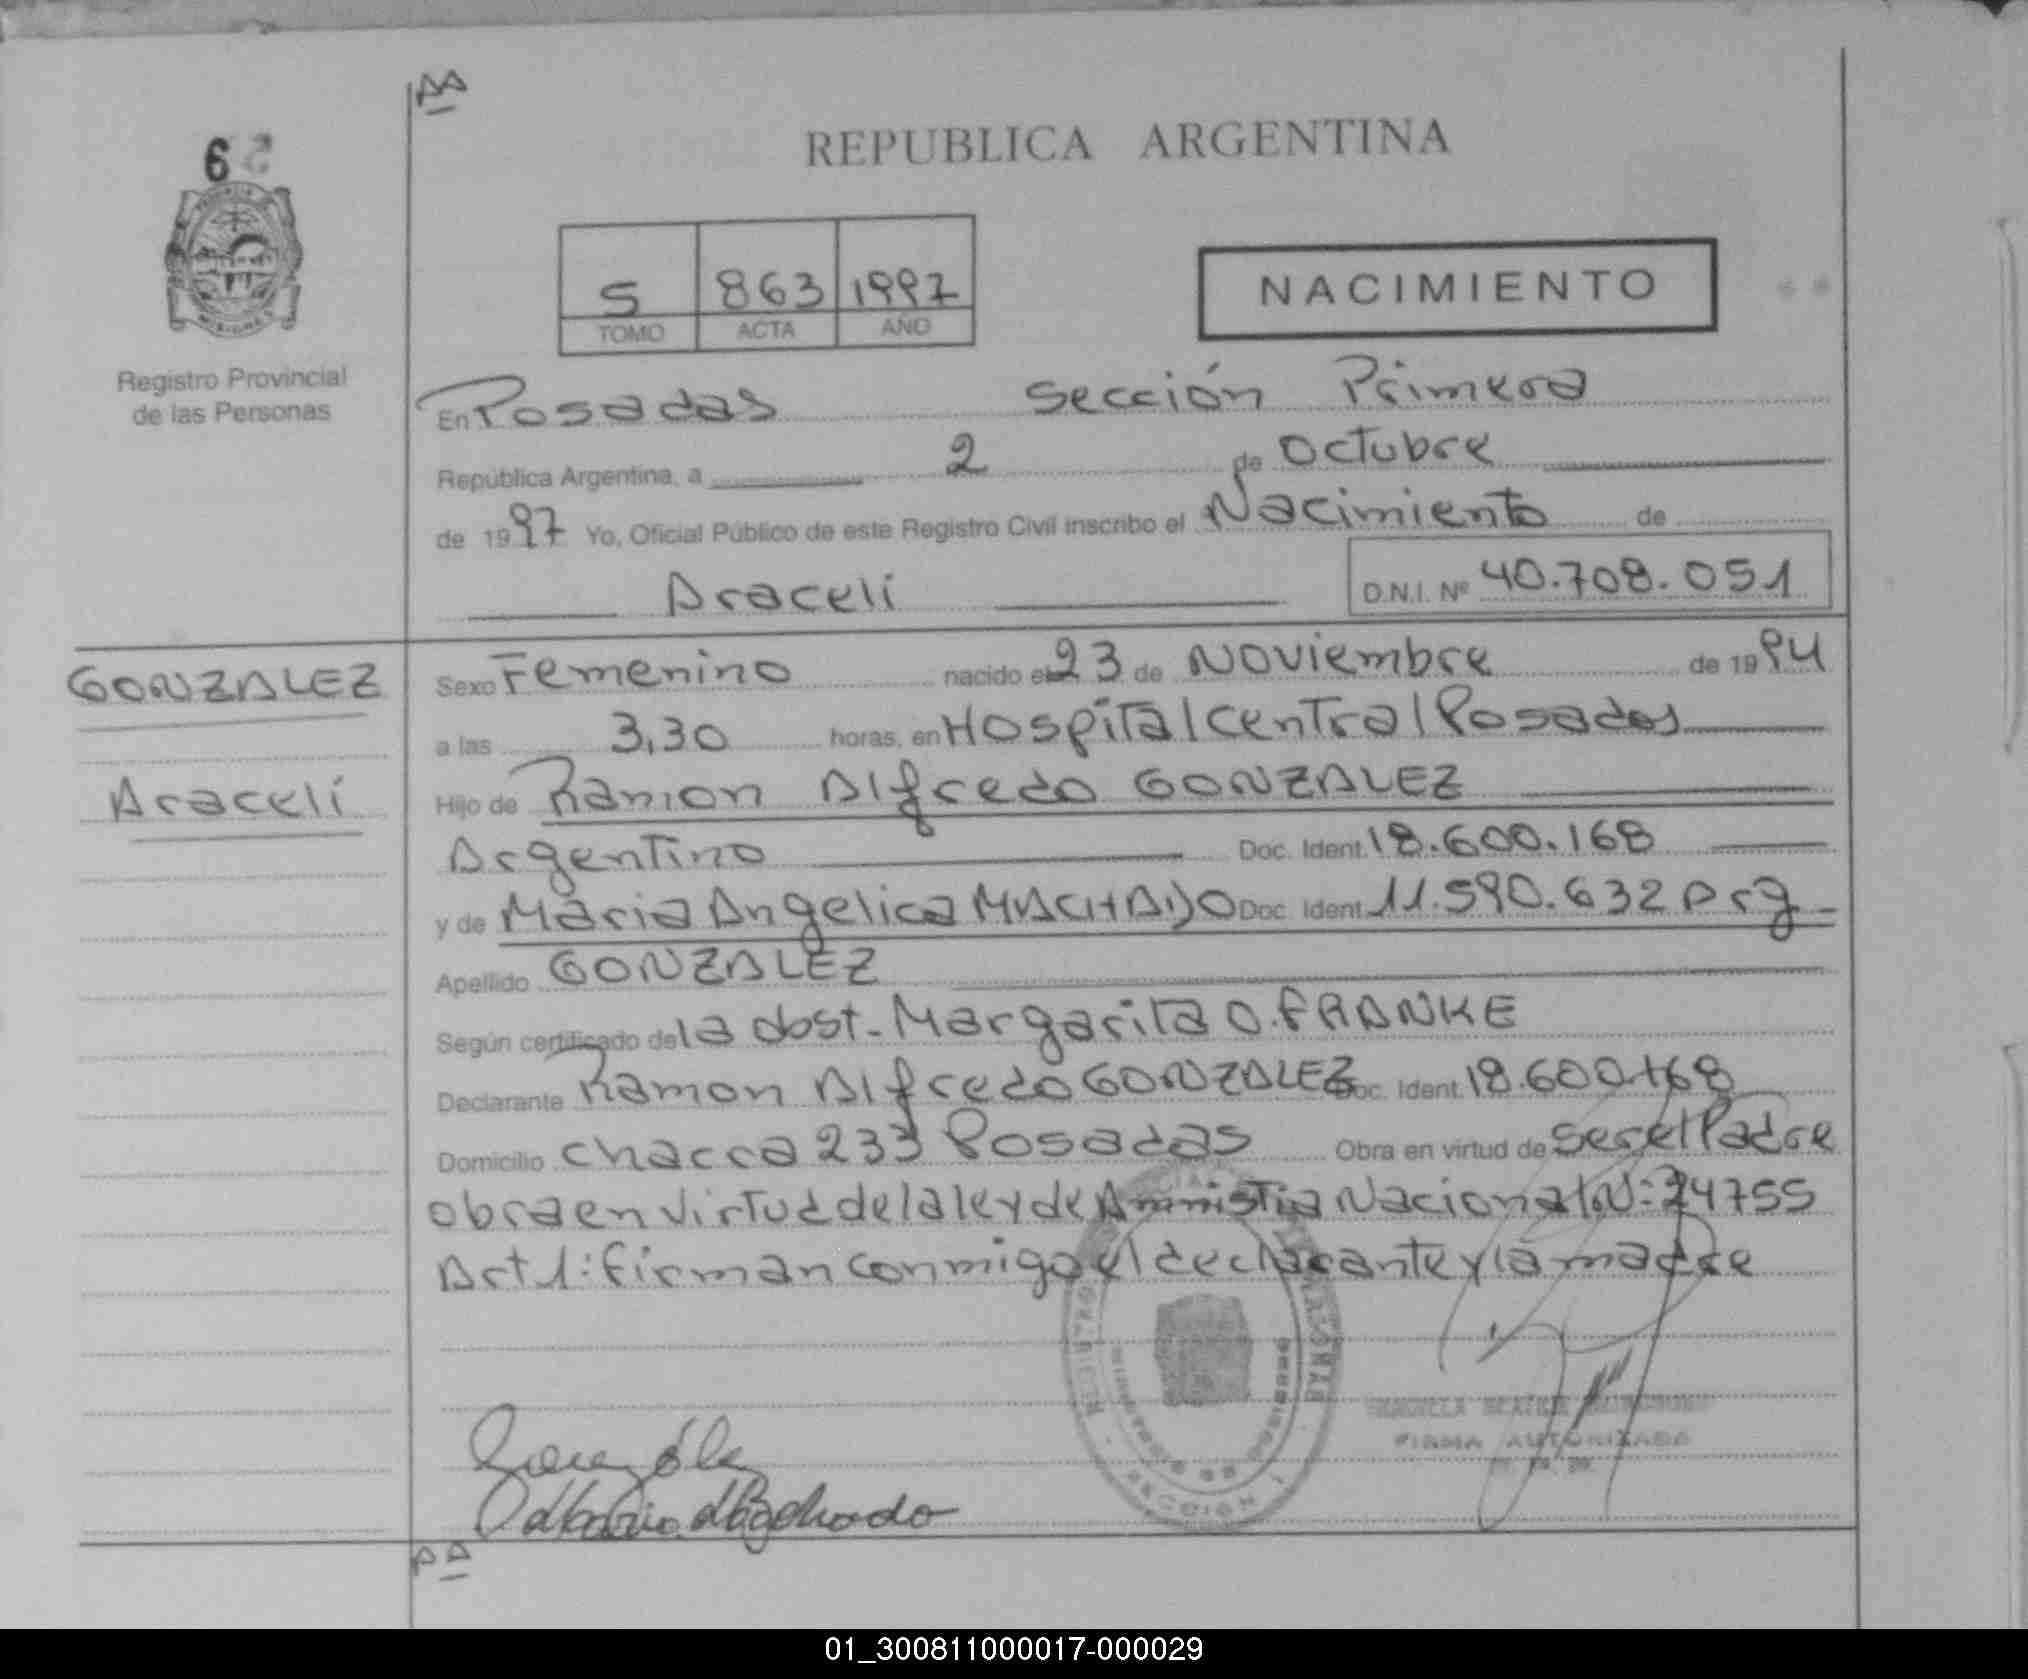 AA
65
REPUBLICA ARGENTINA
5 863 1997
TOMO ACTA AÑO
NACIMIENTO
PROVINCIA MISIONES
Registro Provincial
de las Personas
En Posadas Sección Primera
República Argentina, a 2 de Octubre
de 1997 Yo, Oficial Público de este Registro Civil inscribo el Nacimiento de
Araceli D.N.I. Nº 40.708.051
GONZALEZ
Araceli
Sexo Femenino nacido el 23 de Noviembre de 1994
a las 3,30 horas, en Hospital Central Posadas
Hijo de Ramon Alfredo GONZALEZ
Argentino Doc. Ident. 18.600.168
y de Maria Angelica MACHADO Doc. Ident. 11.590.632 Arg
Apellido GONZALEZ
Según certificado de la obst. Margarita O. FRANKE
Declarante Ramon Alfredo GONZALEZ Doc. Ident. 18.600.168
Domicilio chacra 233 Posadas Obra en virtud de ser el Padre
obra en virtud de la ley de Amnistia Nacional N: 24755
Art 1: firman conmigo el declarante y la madre
SECCION 1
FIRMA AUTORIZADA
González
Machado
AA
01_300811000017-000029